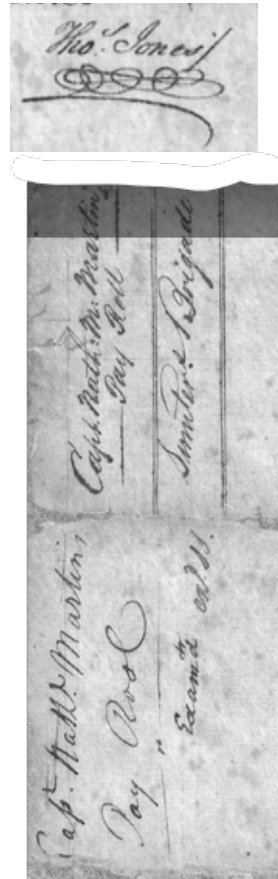 Tho.s Jones
Capt. Nath: M: Martin,
Pay Roll
Sumter's Brigade
Capt. Nath.l Martin,
Pay Rool
Examd